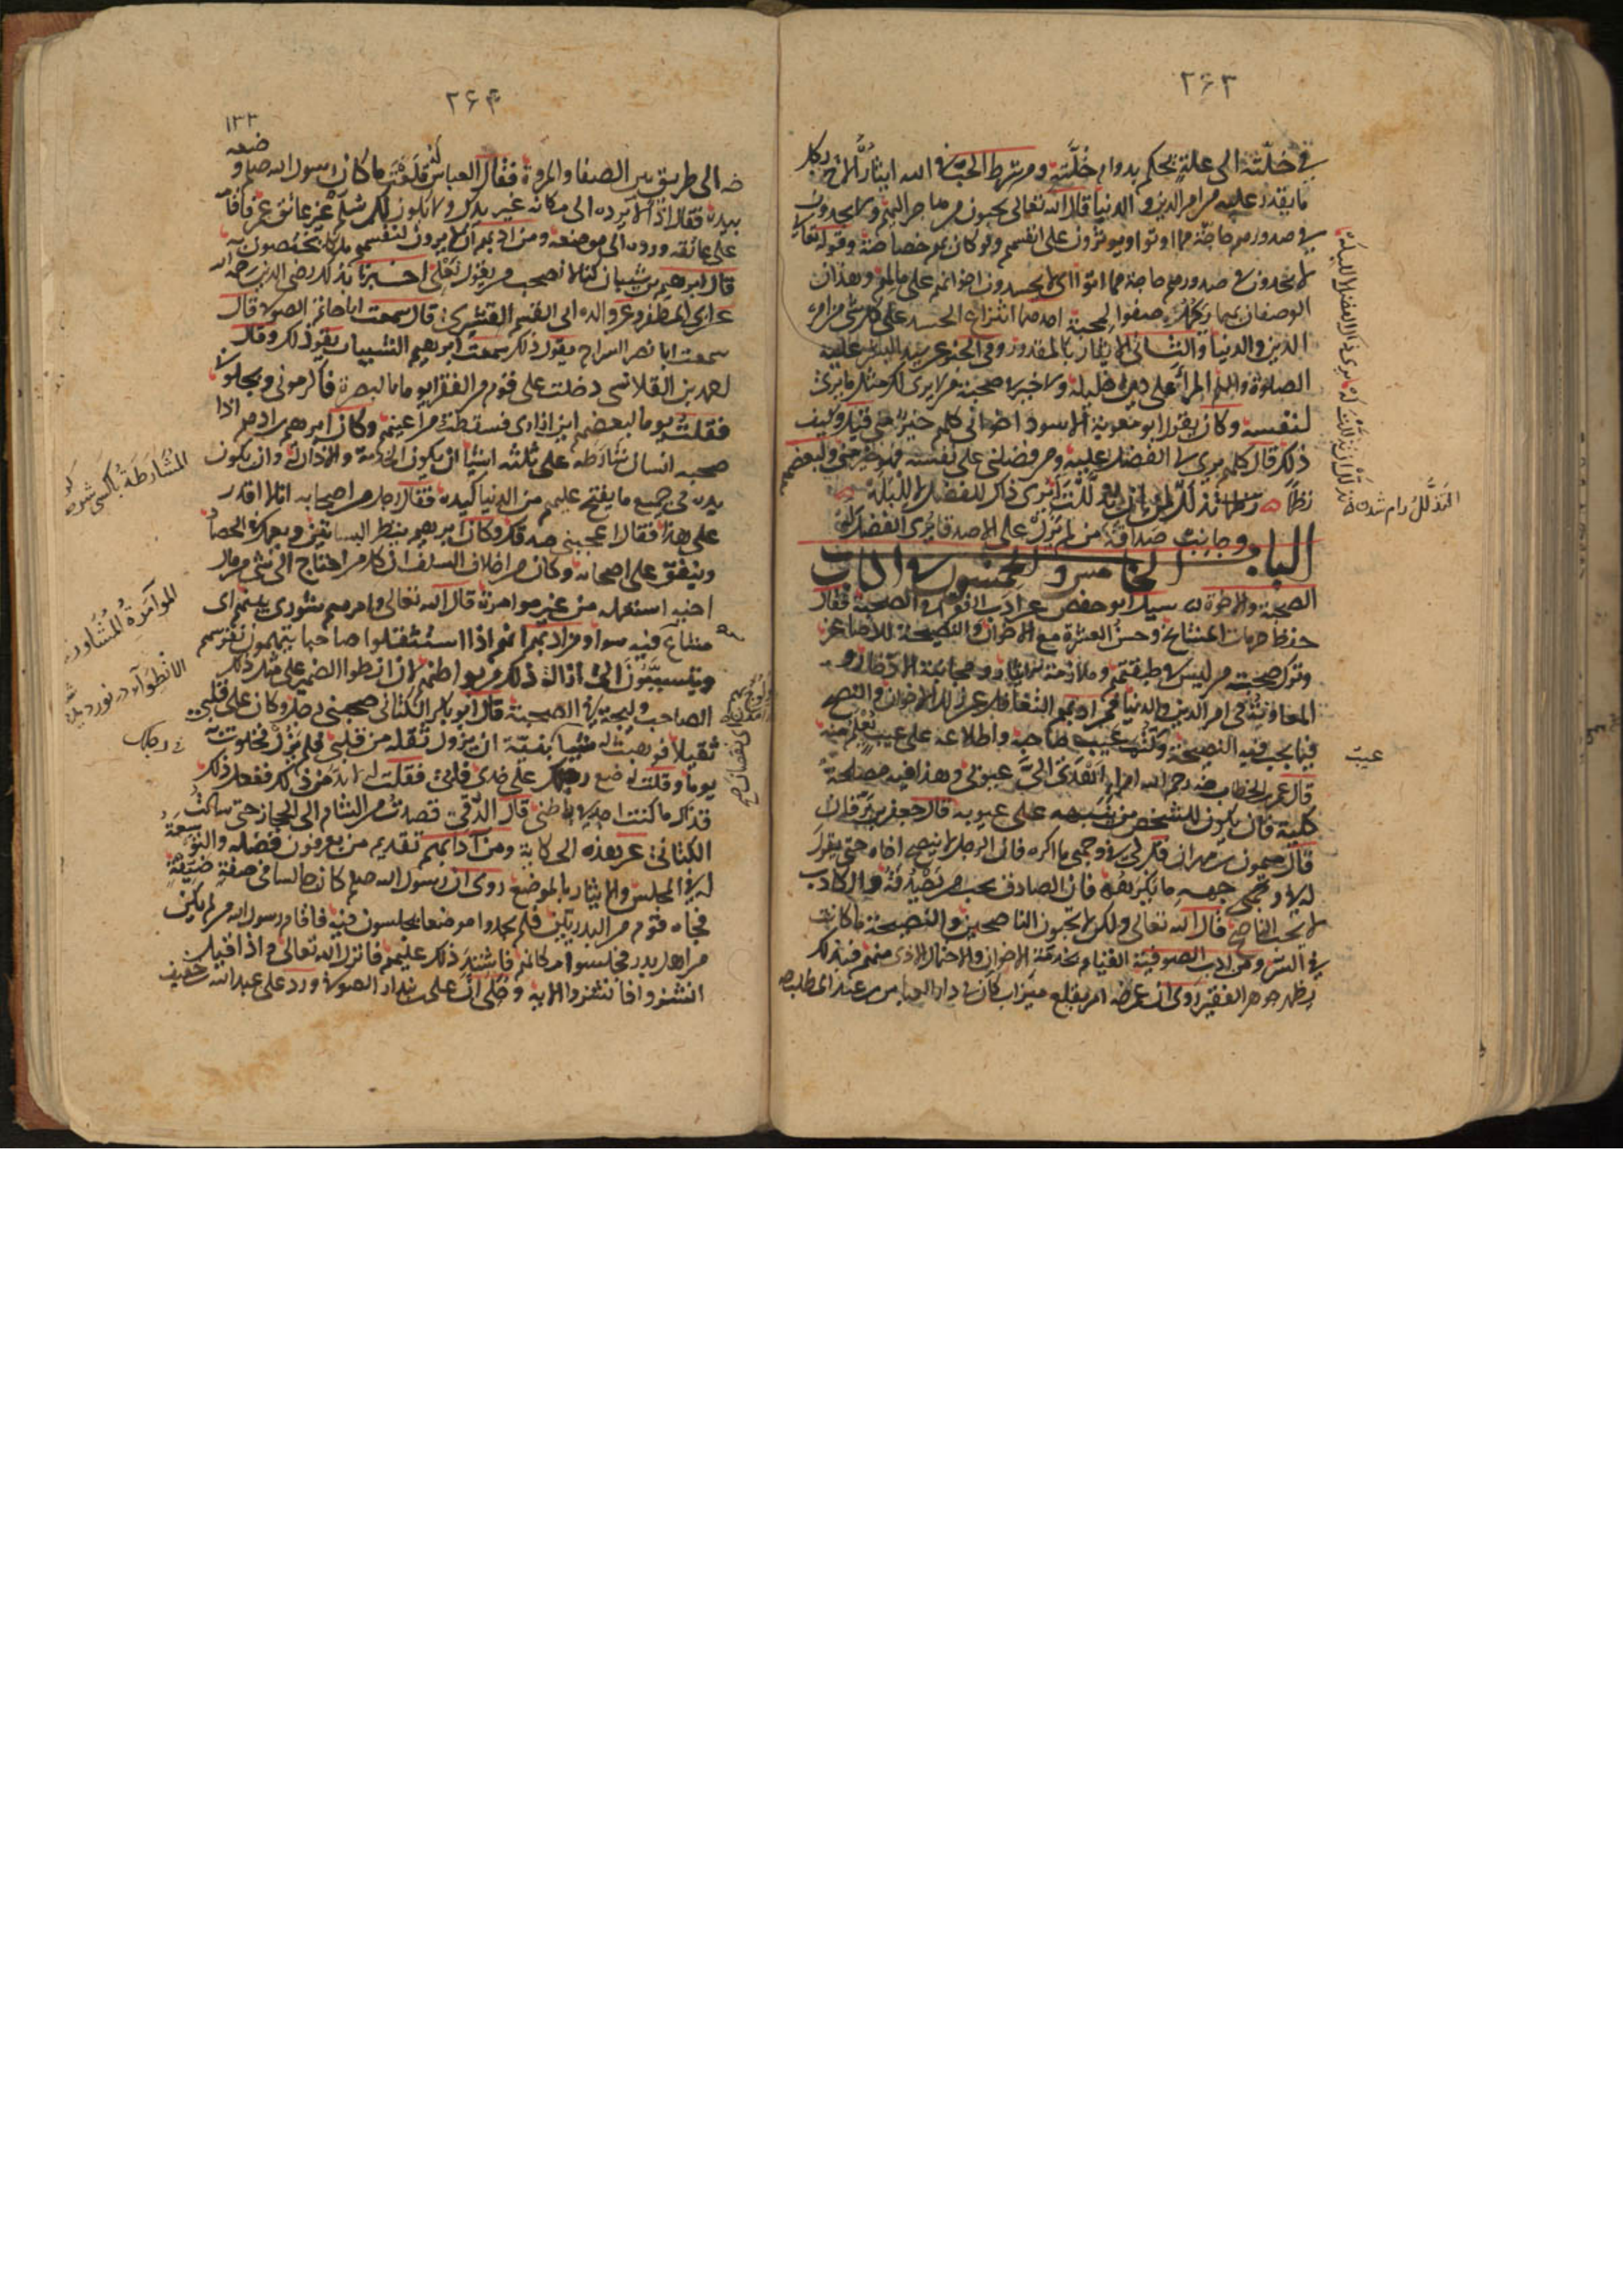 ٢۶٣
في خلّته الى علة يحكم بدوام خلّته ومن شرط الحب في الله ايثار الاخ بكل
ما يقدر عليه من امر الدين والدنيا قال الله تعالى يحبون من هاجر اليهم ولا يجدون
في صدورهم حاجة مما اوتوا ويوثرون على انفسهم ولو كان بهم خصاصة وقوله تعالى
لا يجدون في صدورهم حاجة مما اوتوا اى لا يحسدون اخوانهم على مالهم وهذان
الوصفان بهما يكمل صفو المحبة احدهما انتزاع الحسد على كل شئ من امر
الدين والدنيا والثانى الايثار بالمقدور وفى الخبر عن سيد البشر عليه
الصلوة والسلم المرأ على دين خليله ولا خير في صحبة من لا يرى لك مثل ما يرى
لنفسه وكان يقول ابو معوية الاسود اخوانى كلهم خير منى قيل وكيف
ذلك قال كلهم يرى لى الفضل عليه ومن فضلنى على نفسه فهو خير منى ولبعضهم
نظما تذلل لمن ان تذللت له يرى ذاك للفضل لا للبله
وجانب صداقة من لم يزل على الاصدقا يرى الفضل له
الباب الخامس والخمسون في اداب
الصحبة والاخوة سيل ابو حفص عن ادب الفقرا في الصحبة فقال
حفظ حرمات المشايخ وحسن العشرة مع الاخوان والنصيحة للاصاغر
وترك صحبة من ليس في طبقتهم وملازمة الايثار ومجانبة الادخار و
المعاونة فى امر الدين والدنيا فمن ادبهم التغافل عن زلل الاخوان والنصح
فيما يجب فيه النصيحة وكتم عيب صاحبه واطلاعه على عيب يعلم منه
قال عمر بن الخطاب رضه رحم الله امرا اهدى الىّ عيوبى وهذا فيه مصلحة
كلية فان يكون للشخص من ينبهه على عيوبه قال جعفر بن برقان
قال ميمون بن مهران قل لى فى وجهى ما اكره فان الرجل لا ينصح اخاه حتى يقول
له فى وجهه ما يكرهه فان الصادق يحب من يصدقه والكاذب
لا يحب الناصح قال الله تعالى ولكن لا تحبون الناصحين والنصيحة ما كانت
فى السر ومن ادب الصوفية القيام بخدمة الاخوان والاحتمال الاذى منهم فبذلك
يظهر جوهر الفقير روى ان عمر رضه امر بقلع ميزاب كان فى دار العباس بن عبد المطلب
التذلل رام شدن
عيب
٢۶۴
١٣٣
رضه الى طريق بين الصفا والمروة فقال له العباس قلعت ما كان رسول الله صلم وضعه
بيده فقال اذا لا يرده الى مكانه غير يدك ولا يكون لك سلم غير عاتق عمر فاقامه
على عاتقه ورده الى موضعه ومن ادبهم ان لا يرون لنفسهم ملكا يختصون به
قال ابرهيم بن شيبان كنا لا نصحب من يقول نعلى اخبرنا بذلك رضى الدين رحمه الله
عن ابى المظفر عن والده ابى القسم القشيرى قال سمعت ابا حاتم الصوفى قال
سمعت ابا نصر السراج يقول ذلك سمعت ابرهيم الشيبان يقول ذلك وقال
احمد بن القلانسى دخلت على قوم من الفقرا يوما بالبصرة فاكرمونى وبجلونى
فقلت يوما لبعضهم اين ازارى فسقطت من اعينهم وكان ابرهيم بن ادهم اذا
صحبه انسان شارطه على ثلثة اشيا ان يكون الخدمة والاذان له وان يكون
يده فى جميع ما يفتح عليهم من الدنيا كيده فقال رجل من اصحابه انا لا اقدر
على هذا فقال اعجبنى صدقك وكان ابرهيم ينظر البساتين ويعمل فى الحصاد
وينفق على اصحابه وكان من اخلاق السلف ان كل من احتاج الى شئ من مال
اخيه استعمله من غير موامرة قال الله تعالى وامرهم شورى بينهم اى
مشاع فيه سوا ومن ادبهم انهم اذا استثقلوا صاحبا يتهمون نفوسهم
ويتسببون الى ازالة ذلك من بواطنهم لان انطوا الضمير على مثل ذلك
الصاحب وليجة فى الصحبة قال ابو بكر الكتانى صحبنى رجل وكان على قلبى
ثقيلا فوهبت له شيا بنية ان يزول ثقله من قلبى فلم يزل فخلوت به
يوما وقلت له ضع رجلك على خدى فابى فقلت له لا بد من ذلك ففعل ذلك
فزال ما كنت اجده فى باطنى قال الدقى قصدت من الشام الى الحجاز حتى سالت
الكتانى عن هذه الحكاية ومن آدابهم تقديم من يعرفون فضله والتوسعة
له فى المجلس والايثار بالموضع روى ان رسول الله صلم كان جالسا فى صفة ضيقة
فجاه قوم من البدريين فلم يجدوا موضعا يجلسون فيه فاقام رسول الله من لم يكن
من اهل بدر فجلسوا مكانهم فاشتد ذلك عليهم فانزل الله تعالى واذا قيل
انشزوا فانشزوا الايه وحكى ان على بن بندار الصوفى ورد على عبد الله خفيف
المشارطة باكسى شرط
الموآمرة المشاورة
الانطوآء در نورديدن